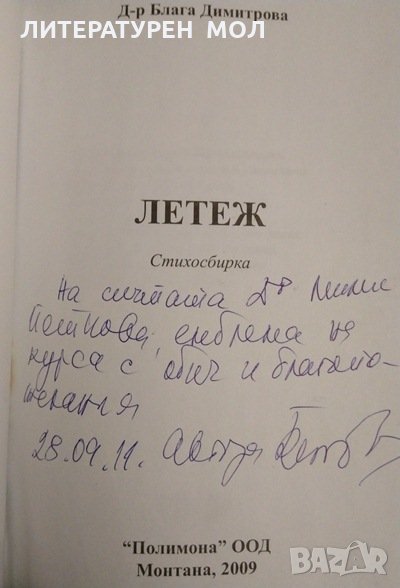 ЛИТЕРАТУРЕН МОЛ
Д-р Блага Димитрова
ЛЕТЕЖ
Стихосбирка
На симпатичната Д-р
Петкова, емблема на
курса с обич и благопо-
желания
28.09.11.
"Полимона" ООД
Монтана, 2009
BAZAR